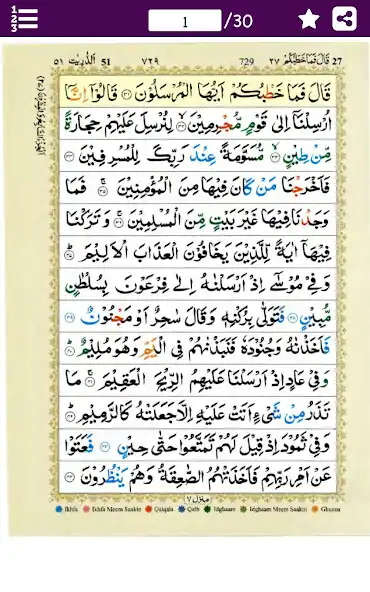 1 /30
51 اَلذّٰرِيٰت ٥١ ٧٢٩ 729 ٢٧ قَالَ فَمَا خَطْبُكُمْ 27
قَالَ فَمَا خَطْبُكُمْ اَيُّهَا الْمُرْسَلُوْنَ ﴿۳۱﴾ قَالُوْۤا اِنَّاۤ
اُرْسِلْنَاۤ اِلٰى قَوْمٍ مُّجْرِمِيْنَ ﴿۳۲﴾ لِنُرْسِلَ عَلَيْهِمْ حِجَارَةً
مِّنْ طِيْنٍ ﴿۳۳﴾ مُّسَوَّمَةً عِنْدَ رَبِّكَ لِلْمُسْرِفِيْنَ ﴿۳۴﴾
فَاَخْرَجْنَا مَنْ كَانَ فِيْهَا مِنَ الْمُؤْمِنِيْنَ ﴿۳۵﴾ فَمَا
وَجَدْنَا فِيْهَا غَيْرَ بَيْتٍ مِّنَ الْمُسْلِمِيْنَ ﴿۳۶﴾ وَتَرَكْنَا
فِيْهَاۤ اٰيَةً لِّلَّذِيْنَ يَخَافُوْنَ الْعَذَابَ الْاَلِيْمَ ﴿۳۷﴾
وَفِيْ مُوْسٰۤى اِذْ اَرْسَلْنٰهُ اِلٰى فِرْعَوْنَ بِسُلْطٰنٍ
مُّبِيْنٍ ﴿۳۸﴾ فَتَوَلّٰى بِرُكْنِهٖ وَقَالَ سٰحِرٌ اَوْ مَجْنُوْنٌ ﴿۳۹﴾
فَاَخَذْنٰهُ وَجُنُوْدَهٗ فَنَبَذْنٰهُمْ فِي الْيَمِّ وَهُوَ مُلِيْمٌ ﴿۴۰﴾
وَفِيْ عَادٍ اِذْ اَرْسَلْنَا عَلَيْهِمُ الرِّيْحَ الْعَقِيْمَ ﴿۴۱﴾ مَا
تَذَرُ مِنْ شَيْءٍ اَتَتْ عَلَيْهِ اِلَّا جَعَلَتْهُ كَالرَّمِيْمِ ﴿۴۲﴾
وَفِيْ ثَمُوْدَ اِذْ قِيْلَ لَهُمْ تَمَتَّعُوْا حَتّٰى حِيْنٍ ﴿۴۳﴾ فَعَتَوْا
عَنْ اَمْرِ رَبِّهِمْ فَاَخَذَتْهُمُ الصّٰعِقَةُ وَهُمْ يَنْظُرُوْنَ ﴿۴۴﴾
منزل ٧
Ikhfa Ikhfa Meem Saakin Qalqala Qalb Idghaam Idghaam Meem Saakin Ghunna